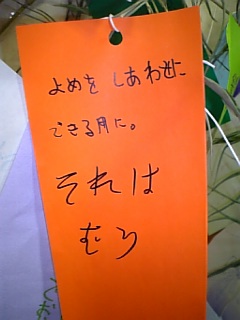 よめを しあわせに
できる用に。
それは
むり